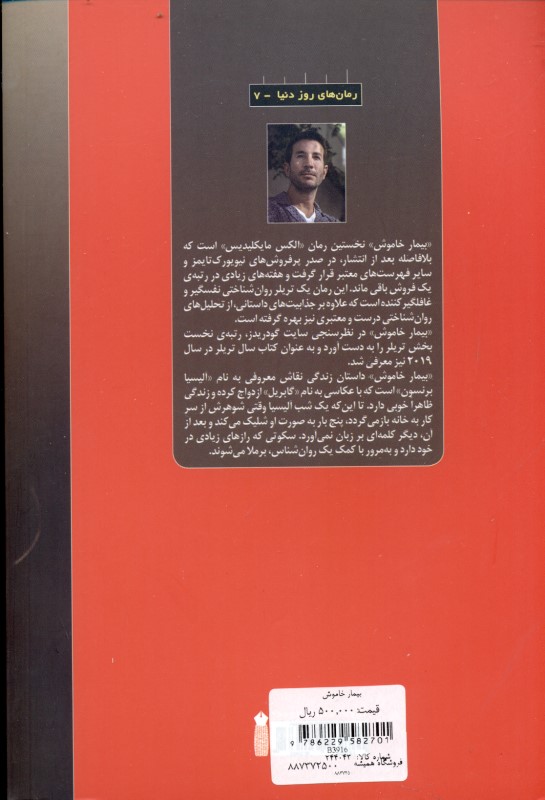 رمان‌های روز دنیا - ۷
«بیمار خاموش» نخستین رمان «الکس مایکلیدیس» است که
بلافاصله بعد از انتشار، در صدر پرفروش‌های نیویورک‌تایمز و
سایر فهرست‌های معتبر قرار گرفت و هفته‌های زیادی در رتبه‌ی
یک فروش باقی ماند. این رمان یک تریلر روان‌شناختی نفسگیر و
غافلگیر کننده است که علاوه بر جذابیت‌های داستانی، از تحلیل‌های
روان‌شناختی درست و معتبری نیز بهره گرفته است.
«بیمار خاموش» در نظرسنجی سایت گودریدز، رتبه‌ی نخست
بخش تریلر را به دست آورد و به عنوان کتاب سال تریلر در سال
۲۰۱۹ نیز معرفی شد.
«بیمار خاموش» داستان زندگی نقاش معروفی به نام «الیسیا
برنسون» است که با عکاسی به نام «گابریل» ازدواج کرده و زندگی
ظاهرا خوبی دارد. تا این‌که یک شب الیسیا وقتی شوهرش از سر
کار به خانه بازمی‌گردد، پنج بار به صورت او شلیک می‌کند و بعد از
ان، دیگر کلمه‌ای بر زبان نمی‌آورد. سکوتی که رازهای زیادی در
خود دارد و به‌مرور با کمک یک روان‌شناس، برملا می‌شوند.
بیمار خاموش
قیمت: ۵۰۰,۰۰۰ ریال
9 786229 582701
B3916
شماره کالا: ۲۴۴۰۴۲
فروشگاه همیشه ۸۸۷۳۷۲۵۰۰